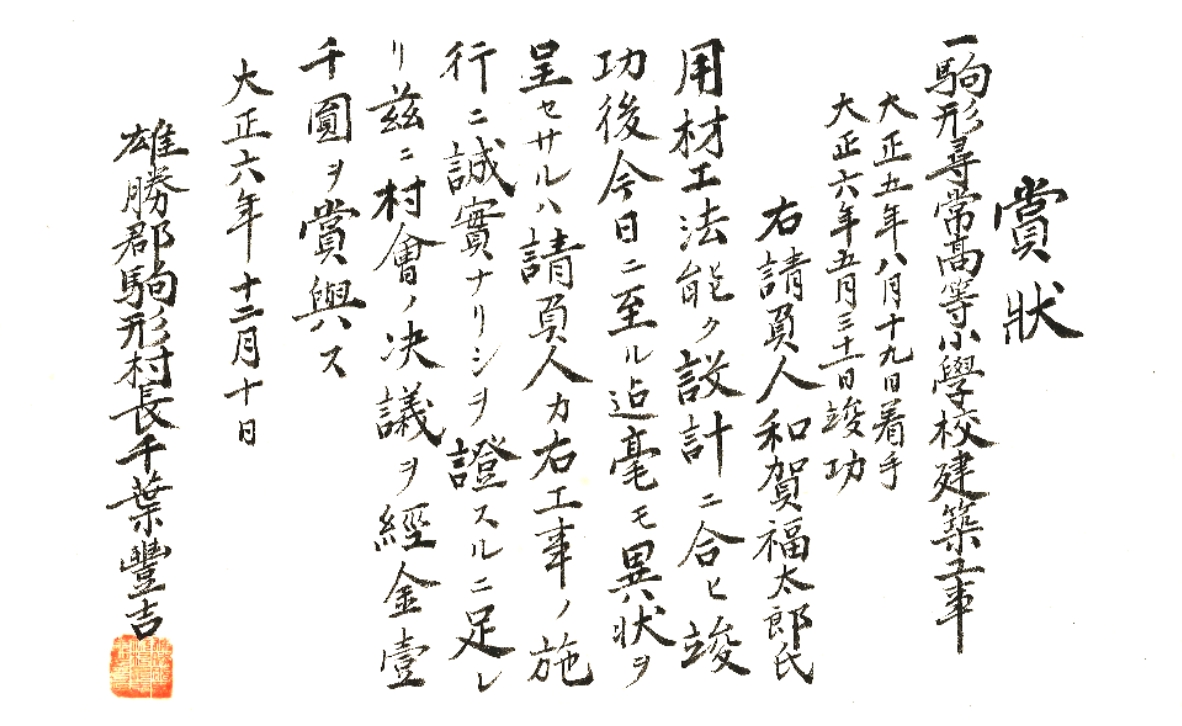 賞狀
一駒形尋常高等小學校建築工事
大正五年八月十九日着手
大正六年五月三十一日竣功
右請負人和賀福太郎氏
用材工法能ク設計ニ合ヒ竣
功後今日ニ至ル迠毫モ異狀ヲ
呈セサルハ請負人カ右工事ノ施
行ニ誠實ナリシヲ證スルニ足レ
リ茲ニ村會ノ决議ヲ經金壹
千圓ヲ賞與ス
大正六年十二月十日
雄勝郡駒形村長千葉豐吉